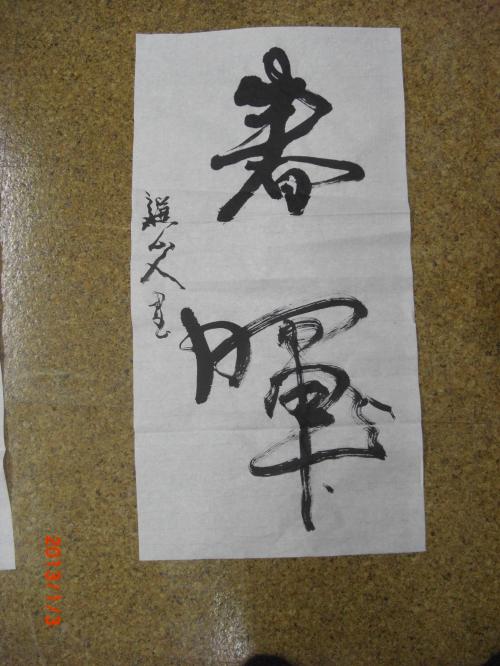 春暉
山人書
2013/1/3